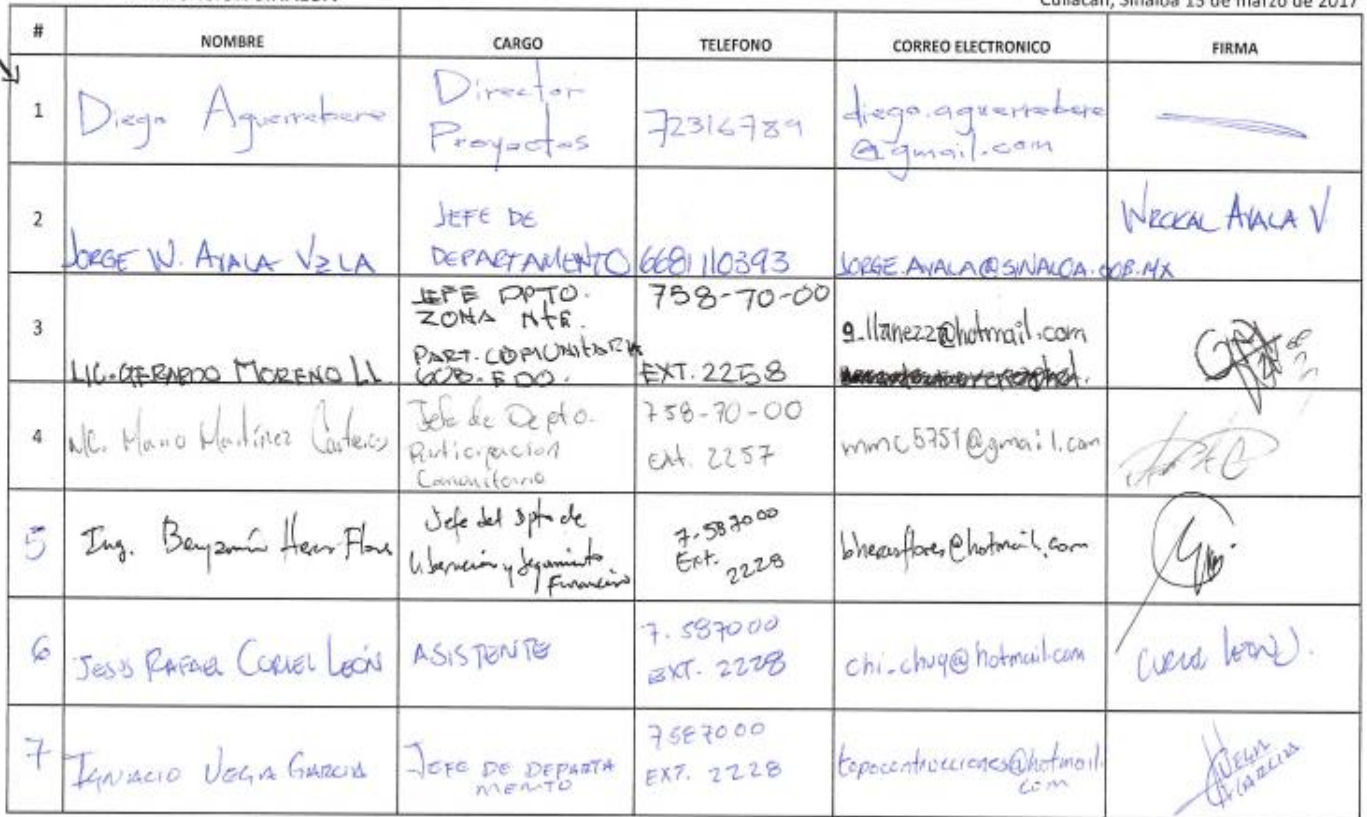 Culiacán, Sinaloa 15 de marzo de 2017
# NOMBRE CARGO TELEFONO CORREO ELECTRONICO FIRMA
1 Diego Aguerrebere Director Proyectos 72316789 diego.aguerrebere@gmail.com
2 JORGE W. AYALA VZLA JEFE DE DEPARTAMENTO 6681110393 JORGE.AYALA@SINALOA.GOB.MX AYALA V
3 LIC. GERARDO MORENO LL. JEFE DPTO. ZONA NTE. PART. COMUNITARIA GOB. EDO. 758-70-00 EXT. 2258 g_llanezz@hotmail.com
4 Mario Martínez Jefe de Depto. Participacion Comunitario 758-70-00 Ext. 2257 mmc5751@gmail.com
5 Ing. Benjamín Heras Flores Jefe del Dpto de Liberación y Seguimiento Financiero 7.587000 Ext. 2228 bherasflores@hotmail.com
6 JESUS RAFAEL CURIEL LEÓN ASISTENTE 7.587000 EXT. 2228 chi_chuq@hotmail.com CURIEL LEON
7 IGNACIO VEGA GARCIA JEFE DE DEPARTAMENTO 7587000 EXT. 2228 VEGA GARCIA